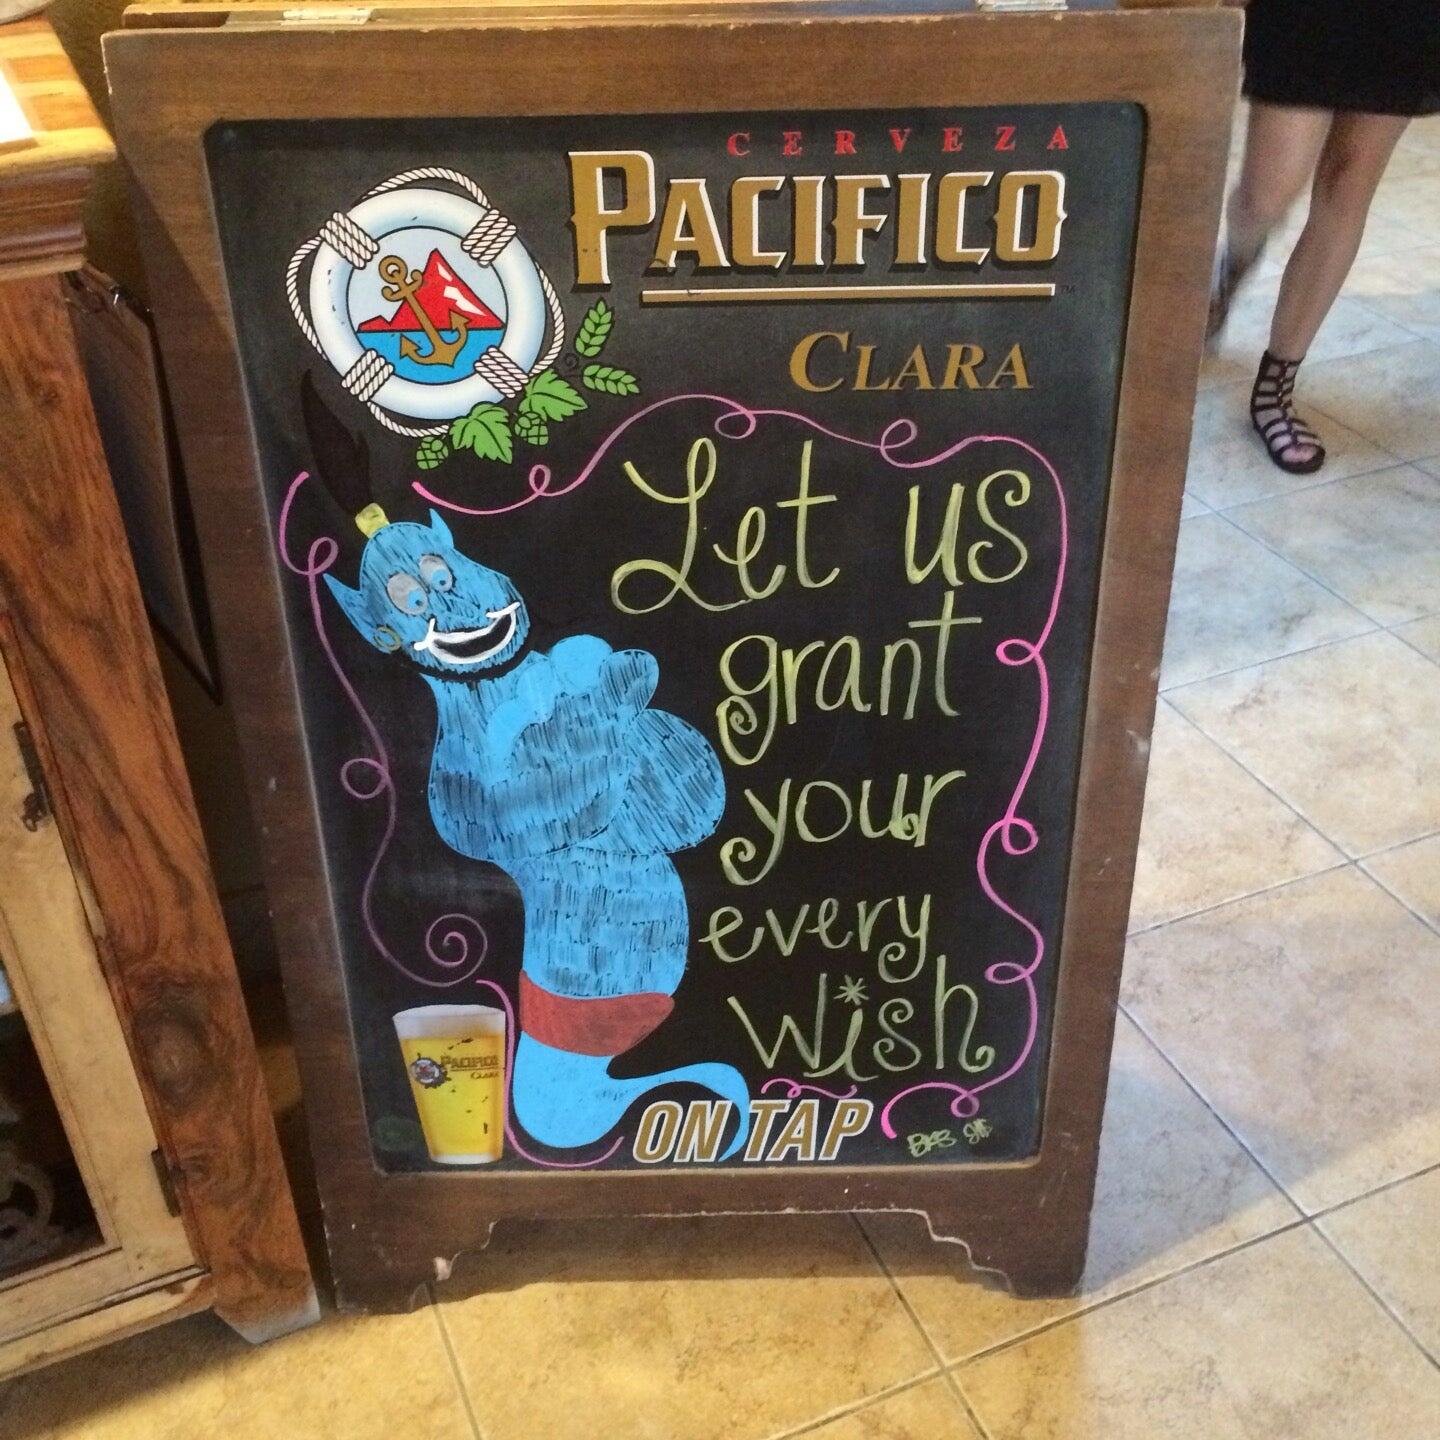 CERVEZA
PACIFICO
CLARA
Let us
grant
your
every
wish
PACIFICO
CLARA
ON TAP